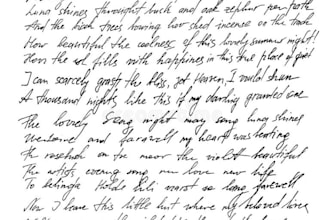 Luna shines through buck and oak zephyr per path
And the birch trees bowing low shed incense on the track
How beautiful the coolness of this lovely summer night!
How the soul fills with happiness in this true place of quiet
I can scarcely grasp the bliss, yet Heaven, I would shun
A thousand nights like this if my darling granted one
The lovely song night may song luna shines
Welcome and farewell my heart was beating
The rosebush on the moor the violet beautiful
The artist's evening song new love new life
To belinda Holde Lili most so long farewell
Now I leave this little hut where my beloved lives